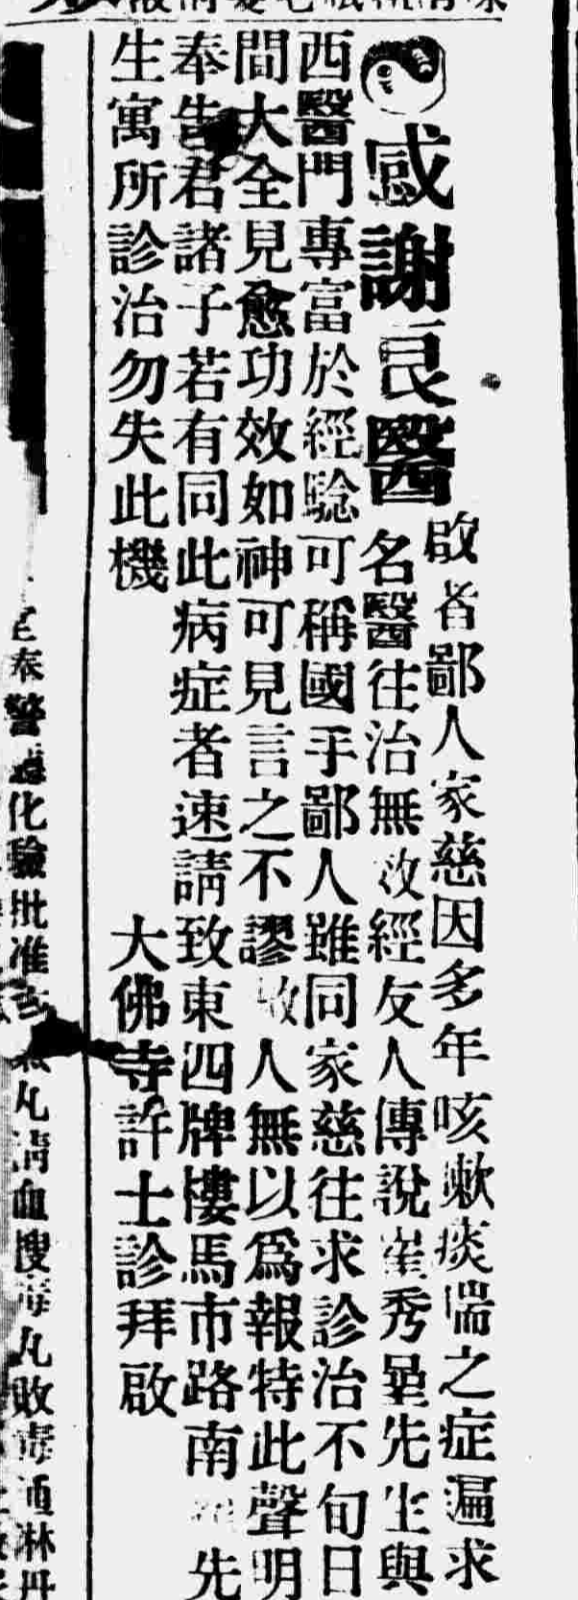 感謝良醫
啟者鄙人家慈因多年咳嗽痰喘之症遍求
名醫往治無效經友人傳說崔秀先生與
西醫門專富於經驗可稱國手鄙人雖同家慈往求診治不旬日
間大全見愈功效如神可見言之不謬人無以爲報特此聲明
奉告君諸子若有同此病症者速請致東四牌樓馬市路南先
生寓所診治勿失此機
大佛寺許士診拜啟
化驗批准
丸淸血搜毒丸敗毒通淋丹